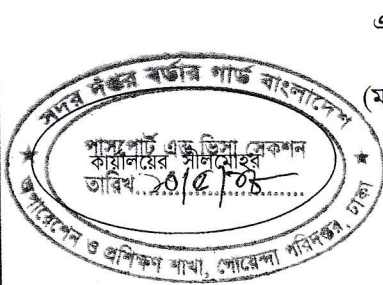 সদর দপ্তর বর্ডার গার্ড বাংলাদেশ
পাসপোর্ট এন্ড ভিসা সেকশন
কার্যালয়ের সীলমোহর
তারিখ
অপারেশন ও প্রশিক্ষণ শাখা, গোয়েন্দা পরিদপ্তর, ঢাকা